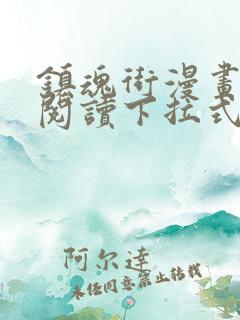 鎮魂街漫畫
閱讀下拉式
阿尔達
未经同意禁止转载